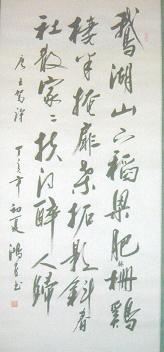 鵝湖山下稻粱肥柵鷄
棲半掩扉桑柘影斜春
社散家々扶得醉人歸
唐王駕詩 丁亥年初夏 鴻書